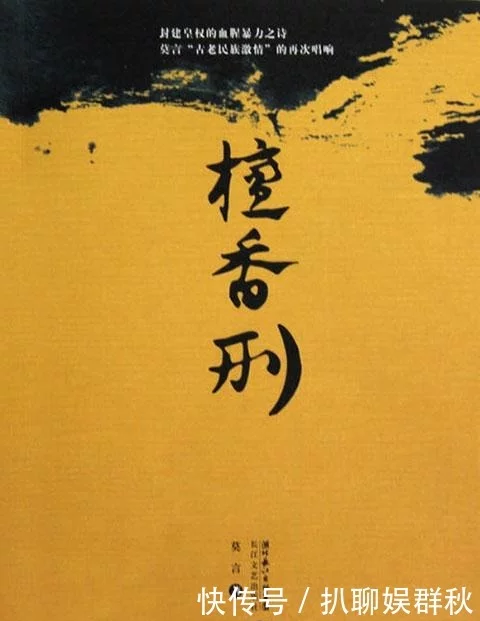 封建皇权的血腥暴力之诗
莫言“古老民族激情”的再次唱响
檀香刑
莫言
长江文艺出
快传号 / 扒聊娱群秋